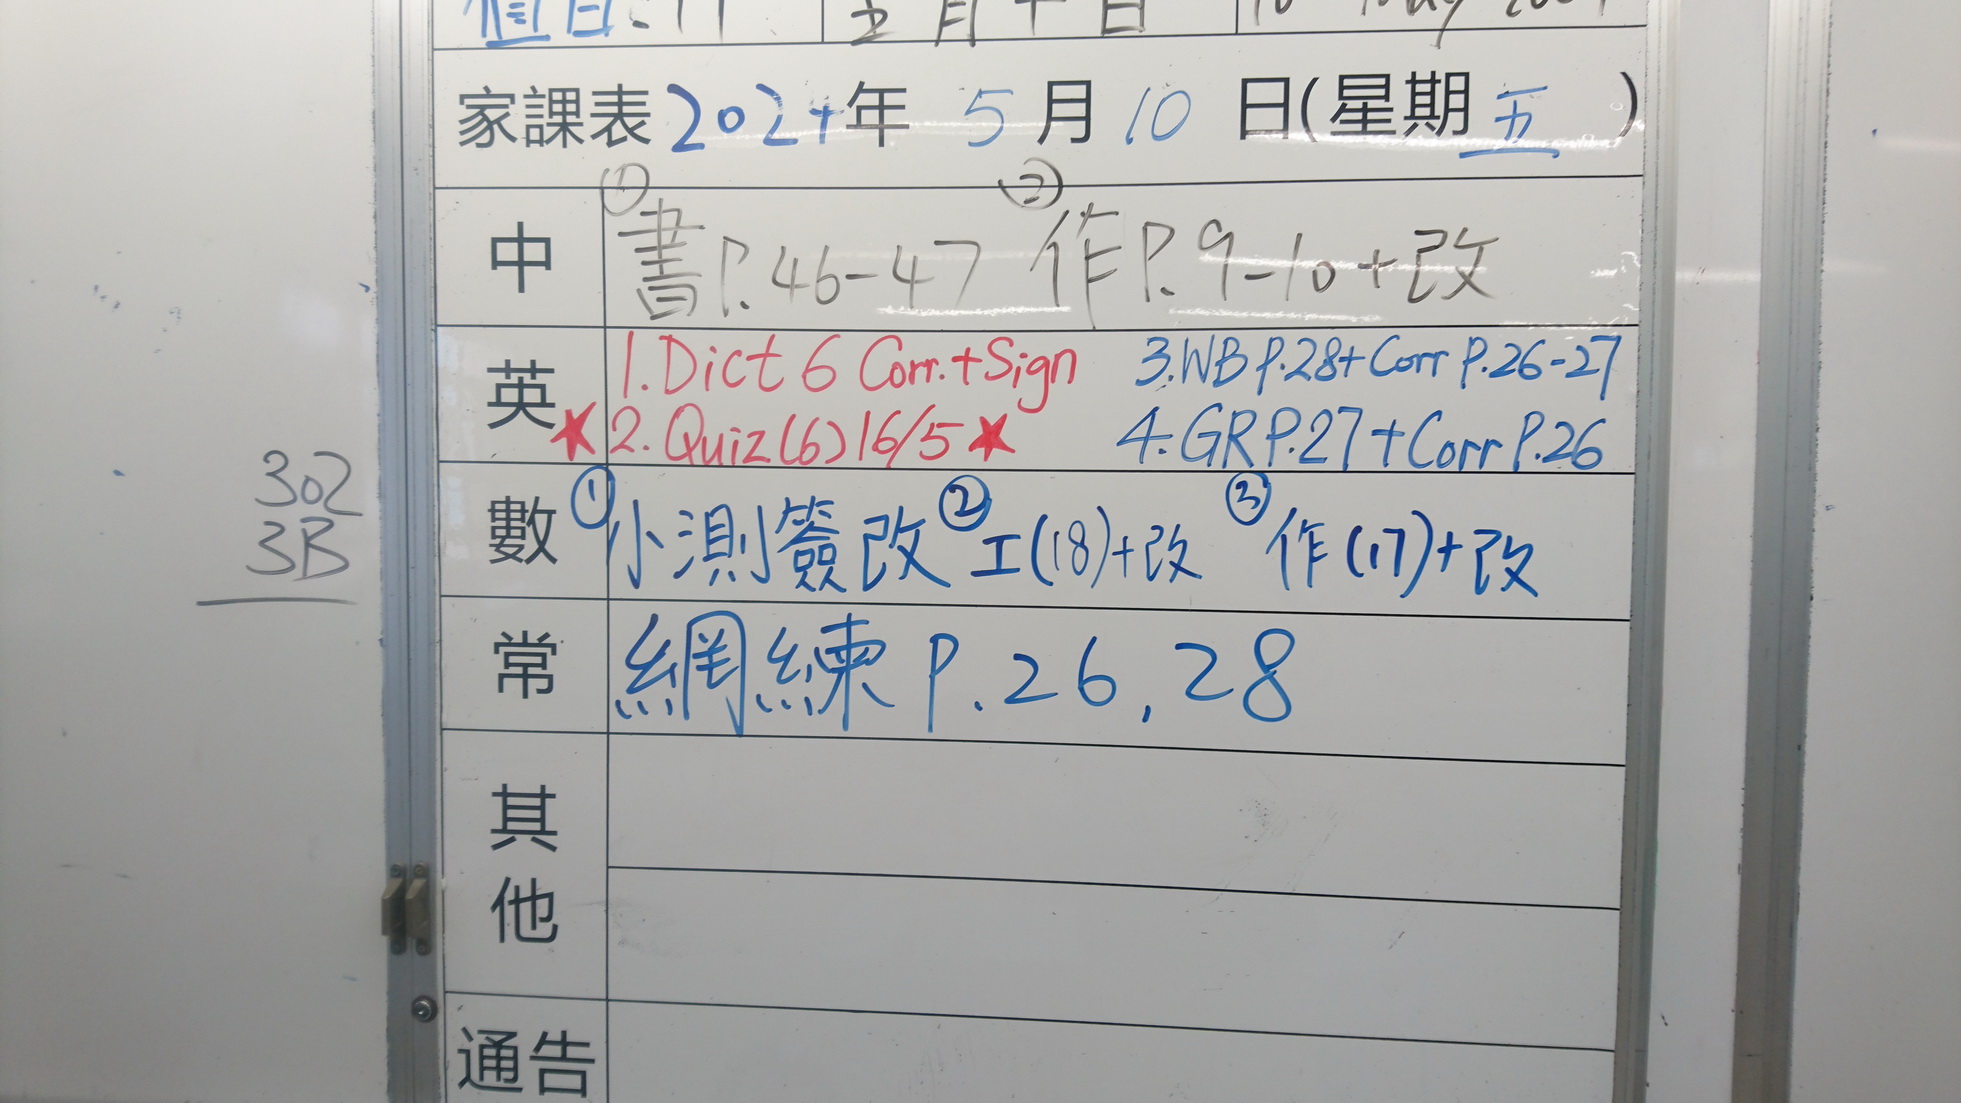 值日:11 五月十日 10 May 2024
家課表2024年 5月10日(星期五)
中 ①書P.46-47 ②作P.9-10+改
英 1.Dict 6 Corr.+Sign 3.WB P.28+Corr P.26-27
★2.Quiz(6)16/5★ 4.GR P.27+Corr P.26
302
3B
數 ①小測簽改 ②工(18)+改 ③作(17)+改
常 網練 P.26,28
其他
通告